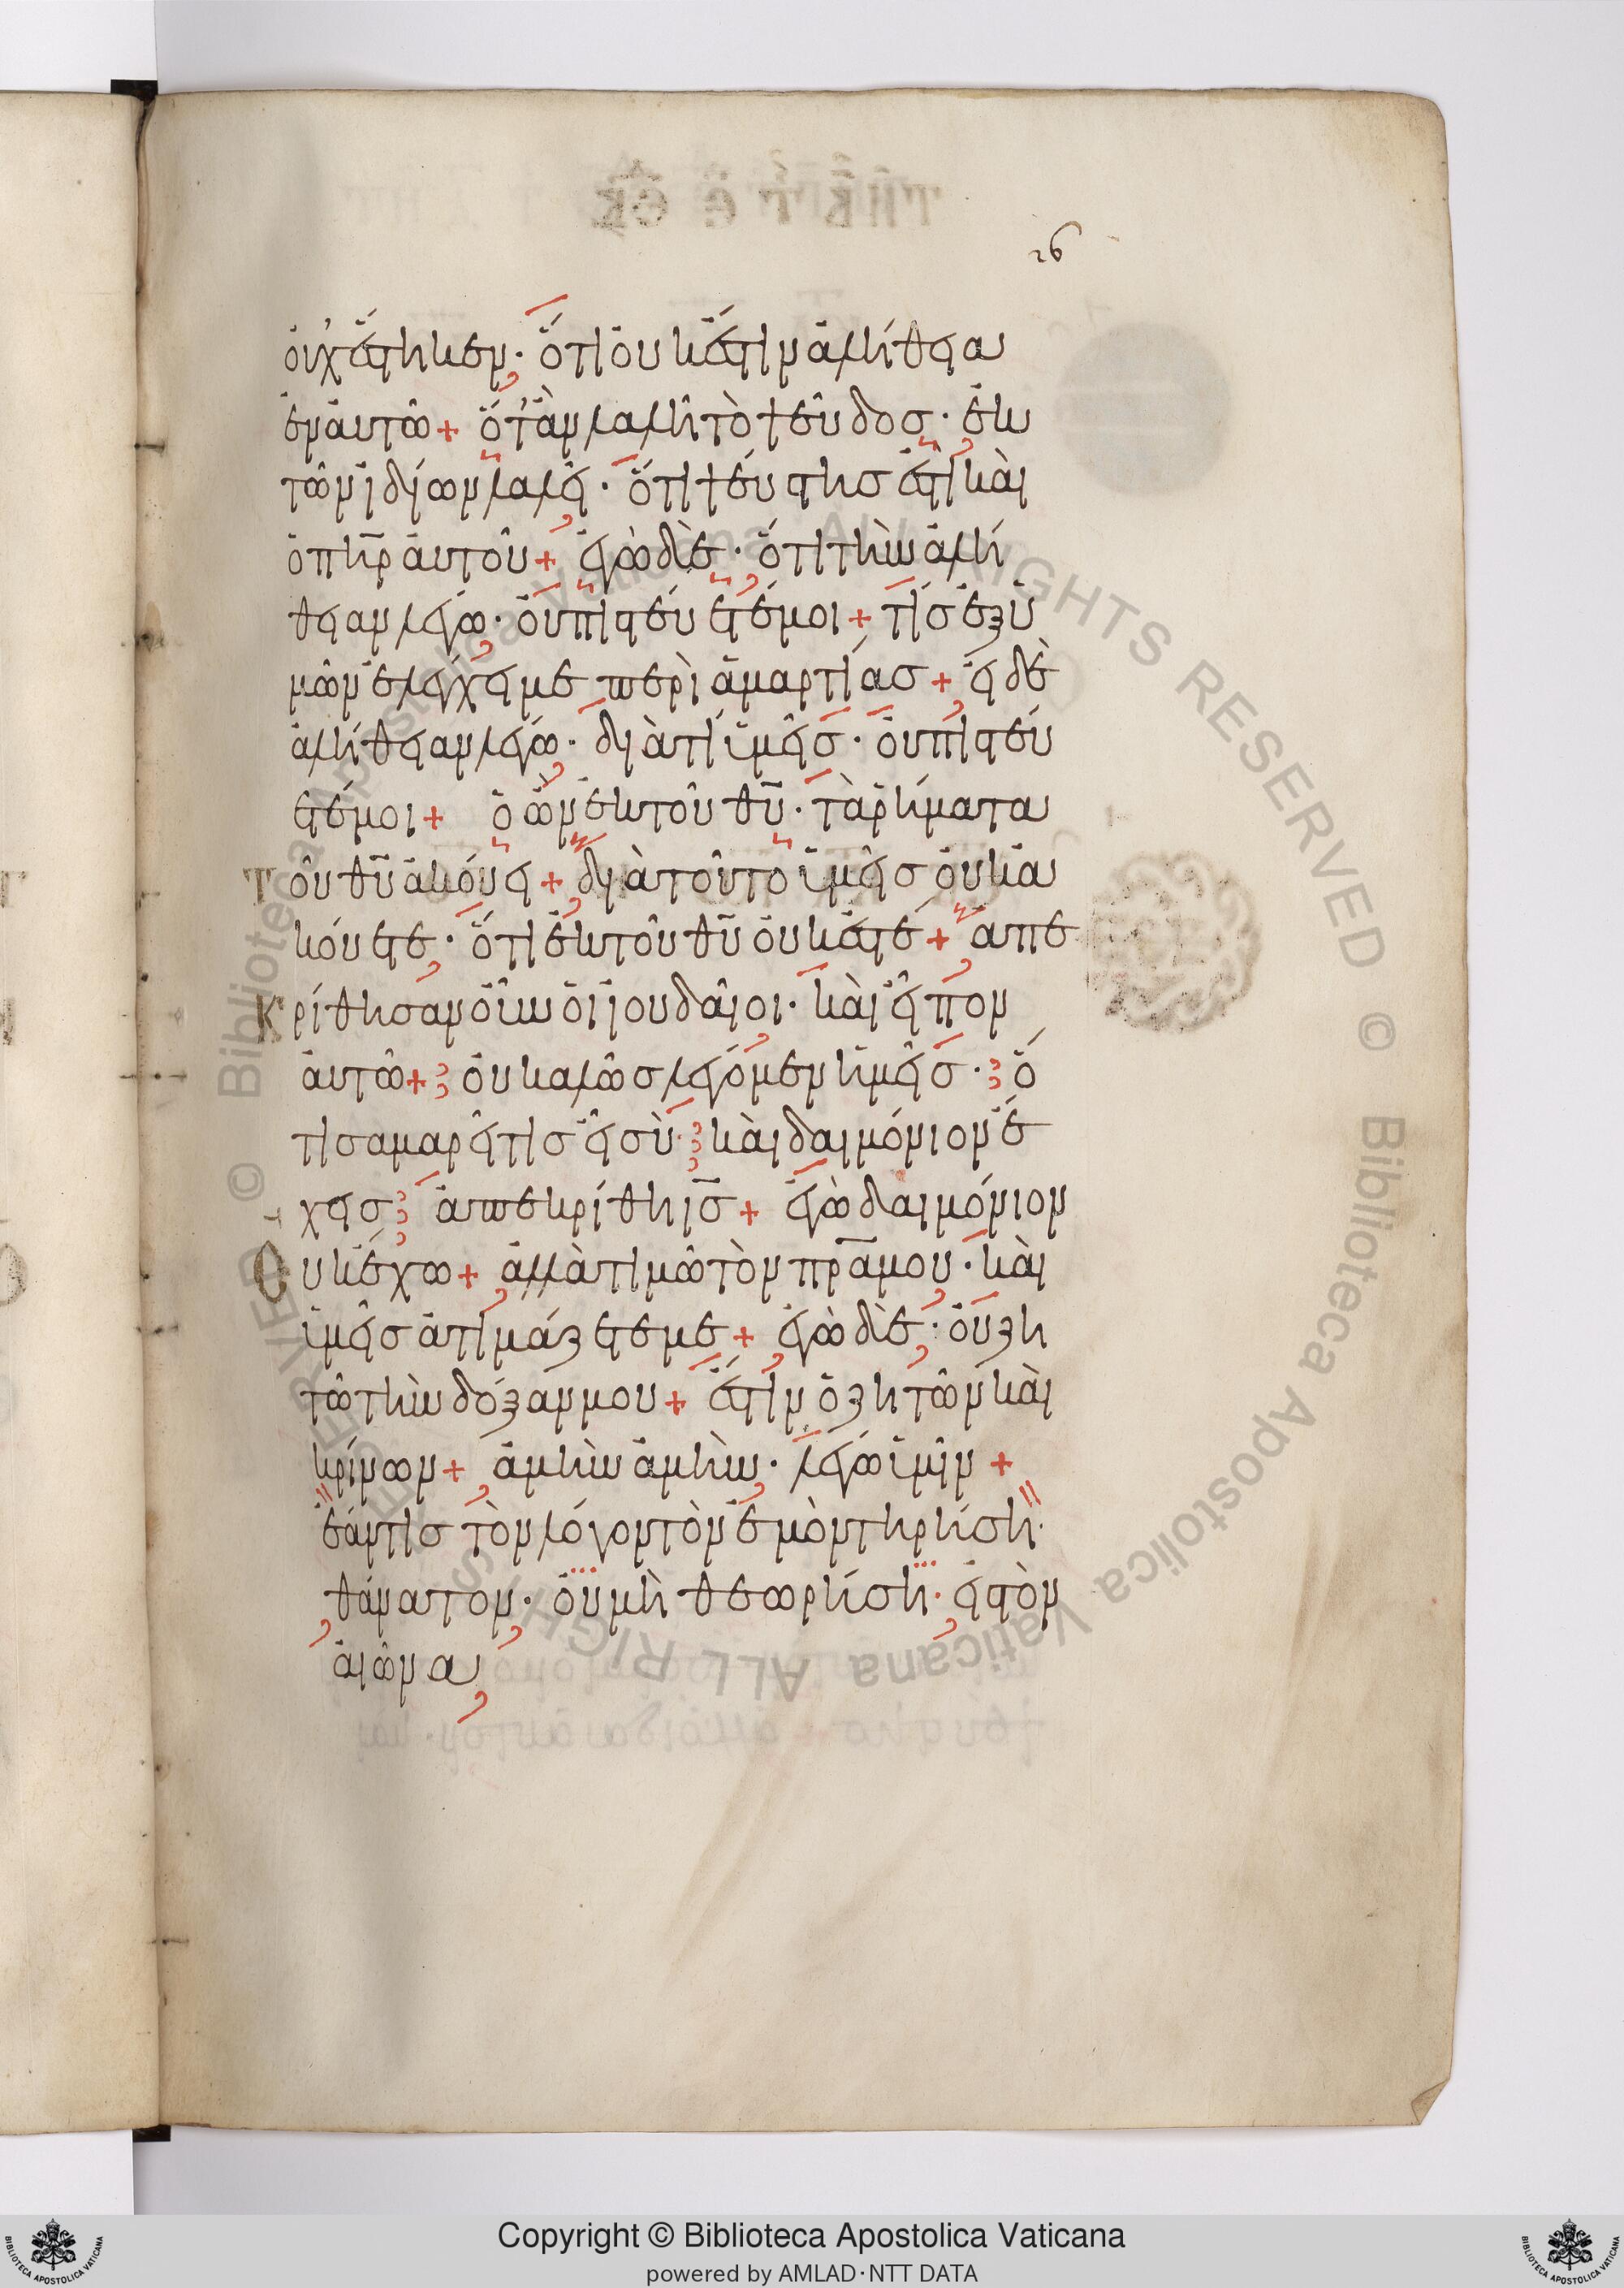 26
οὐχ ἕστηκεν· ὅτι οὐκ ἔστιν ἀλήθεια
ἐν αὐτῶ + ὅτ' ἂν λαλῆ τὸ ψεῦδος· ἐκ
τῶν ἰδίων λαλεῖ· ὅτι ψεύστης ἐστὶ καὶ
ὁ πη̅ρ αὐτοῦ + ἐγὼ δὲ· ὅτι τὴν ἀλή
θειαν λέγω· οὐ πιστεύετέ μοι + τίς ἐξ ὑ
μῶν ἐλέγχει με περὶ ἁμαρτίας + εἰ δὲ
ἀλήθειαν λέγω· διατί ὑμεῖς· οὐ πιστεύ
ετέ μοι + ὁ ὢν ἐκ τοῦ θ̅υ̅· τὰ ῥήματα
Τοῦ θ̅υ̅ ἀκούει + διὰ τοῦτο ὑμεῖς οὐκ ἀ
κούετε· ὅτι ἐκ τοῦ θ̅υ̅ οὐκ ἐστέ + ἀπε
Κρίθησαν οὖν οἱ ἰουδαῖοι· καὶ εἶπον
αὐτῶ + οὐ καλῶς λέγομεν ἡμεῖς· ὅ
τι σαμαρείτις εἶ σὺ· καὶ δαιμόνιον ἔ
χεις ἀπεκρίθη ι̅ς̅ + ἐγὼ δαιμόνιον
Οὐκ ἔχω + ἀλλὰ τιμῶ τὸν πρ̅α μου· καὶ
ὑμεῖς ἀτιμάζετε με + ἐγὼ δὲ· οὐ ζη
τῶ τὴν δόξαν μου + ἔστιν ὁ ζητῶν καὶ
κρίνων + ἀμὴν ἀμὴν· λέγω ὑμῖν +
ἐάν τις τὸν λόγον τὸν ἐμὸν τηρήση·
θάνατον· οὐ μὴ θεωρήση· εἰς τὸν
αἰῶνα
Copyright © Biblioteca Apostolica Vaticana
powered by AMLAD·NTT DATA
© Biblioteca Apostolica Vaticana ALL RIGHTS RESERVED © Biblioteca Apostolica Vaticana ALL RIGHTS RESERVED